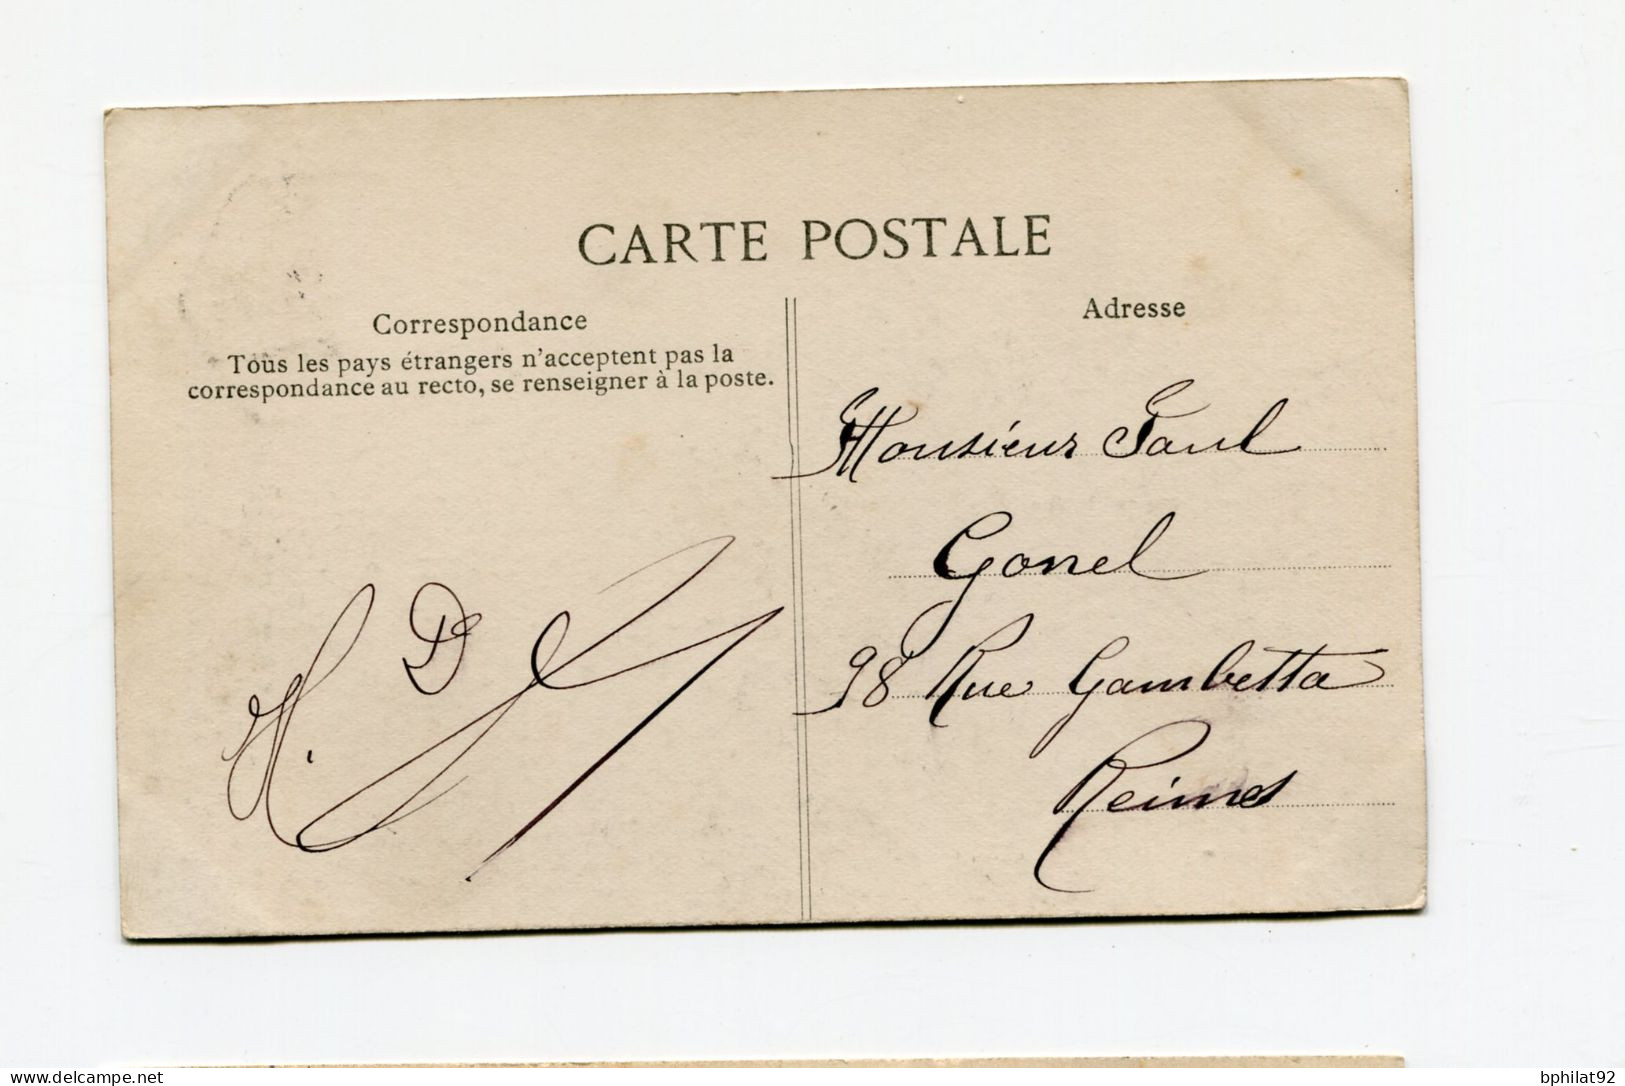 CARTE POSTALE
Correspondance
Tous les pays étrangers n'acceptent pas la
correspondance au recto, se renseigner à la poste.
H. D
Adresse
Monsieur Paul
Gonel
98 Rue Gambetta
Reims
delcampe.net
bphilat92